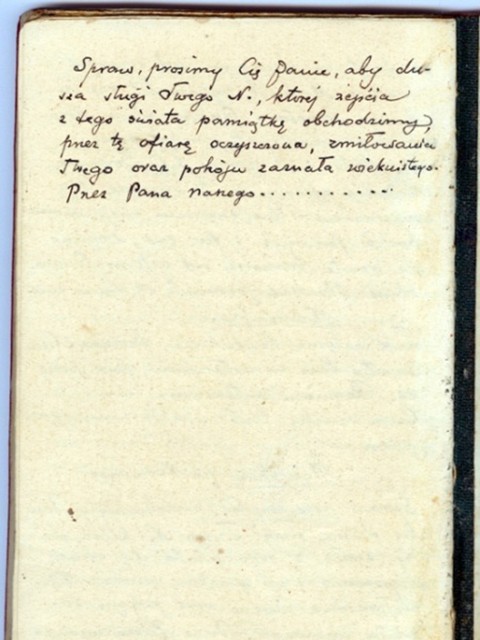 Spraw, prosimy Cię Panie, aby du-
sza sługi Twego N., której zejścia
z tego świata pamiątkę obchodzimy,
przez tę ofiarę oczyszczona, zmiłowania
Twego oraz pokoju zaznała wiekuistego.
Przez Pana naszego...........